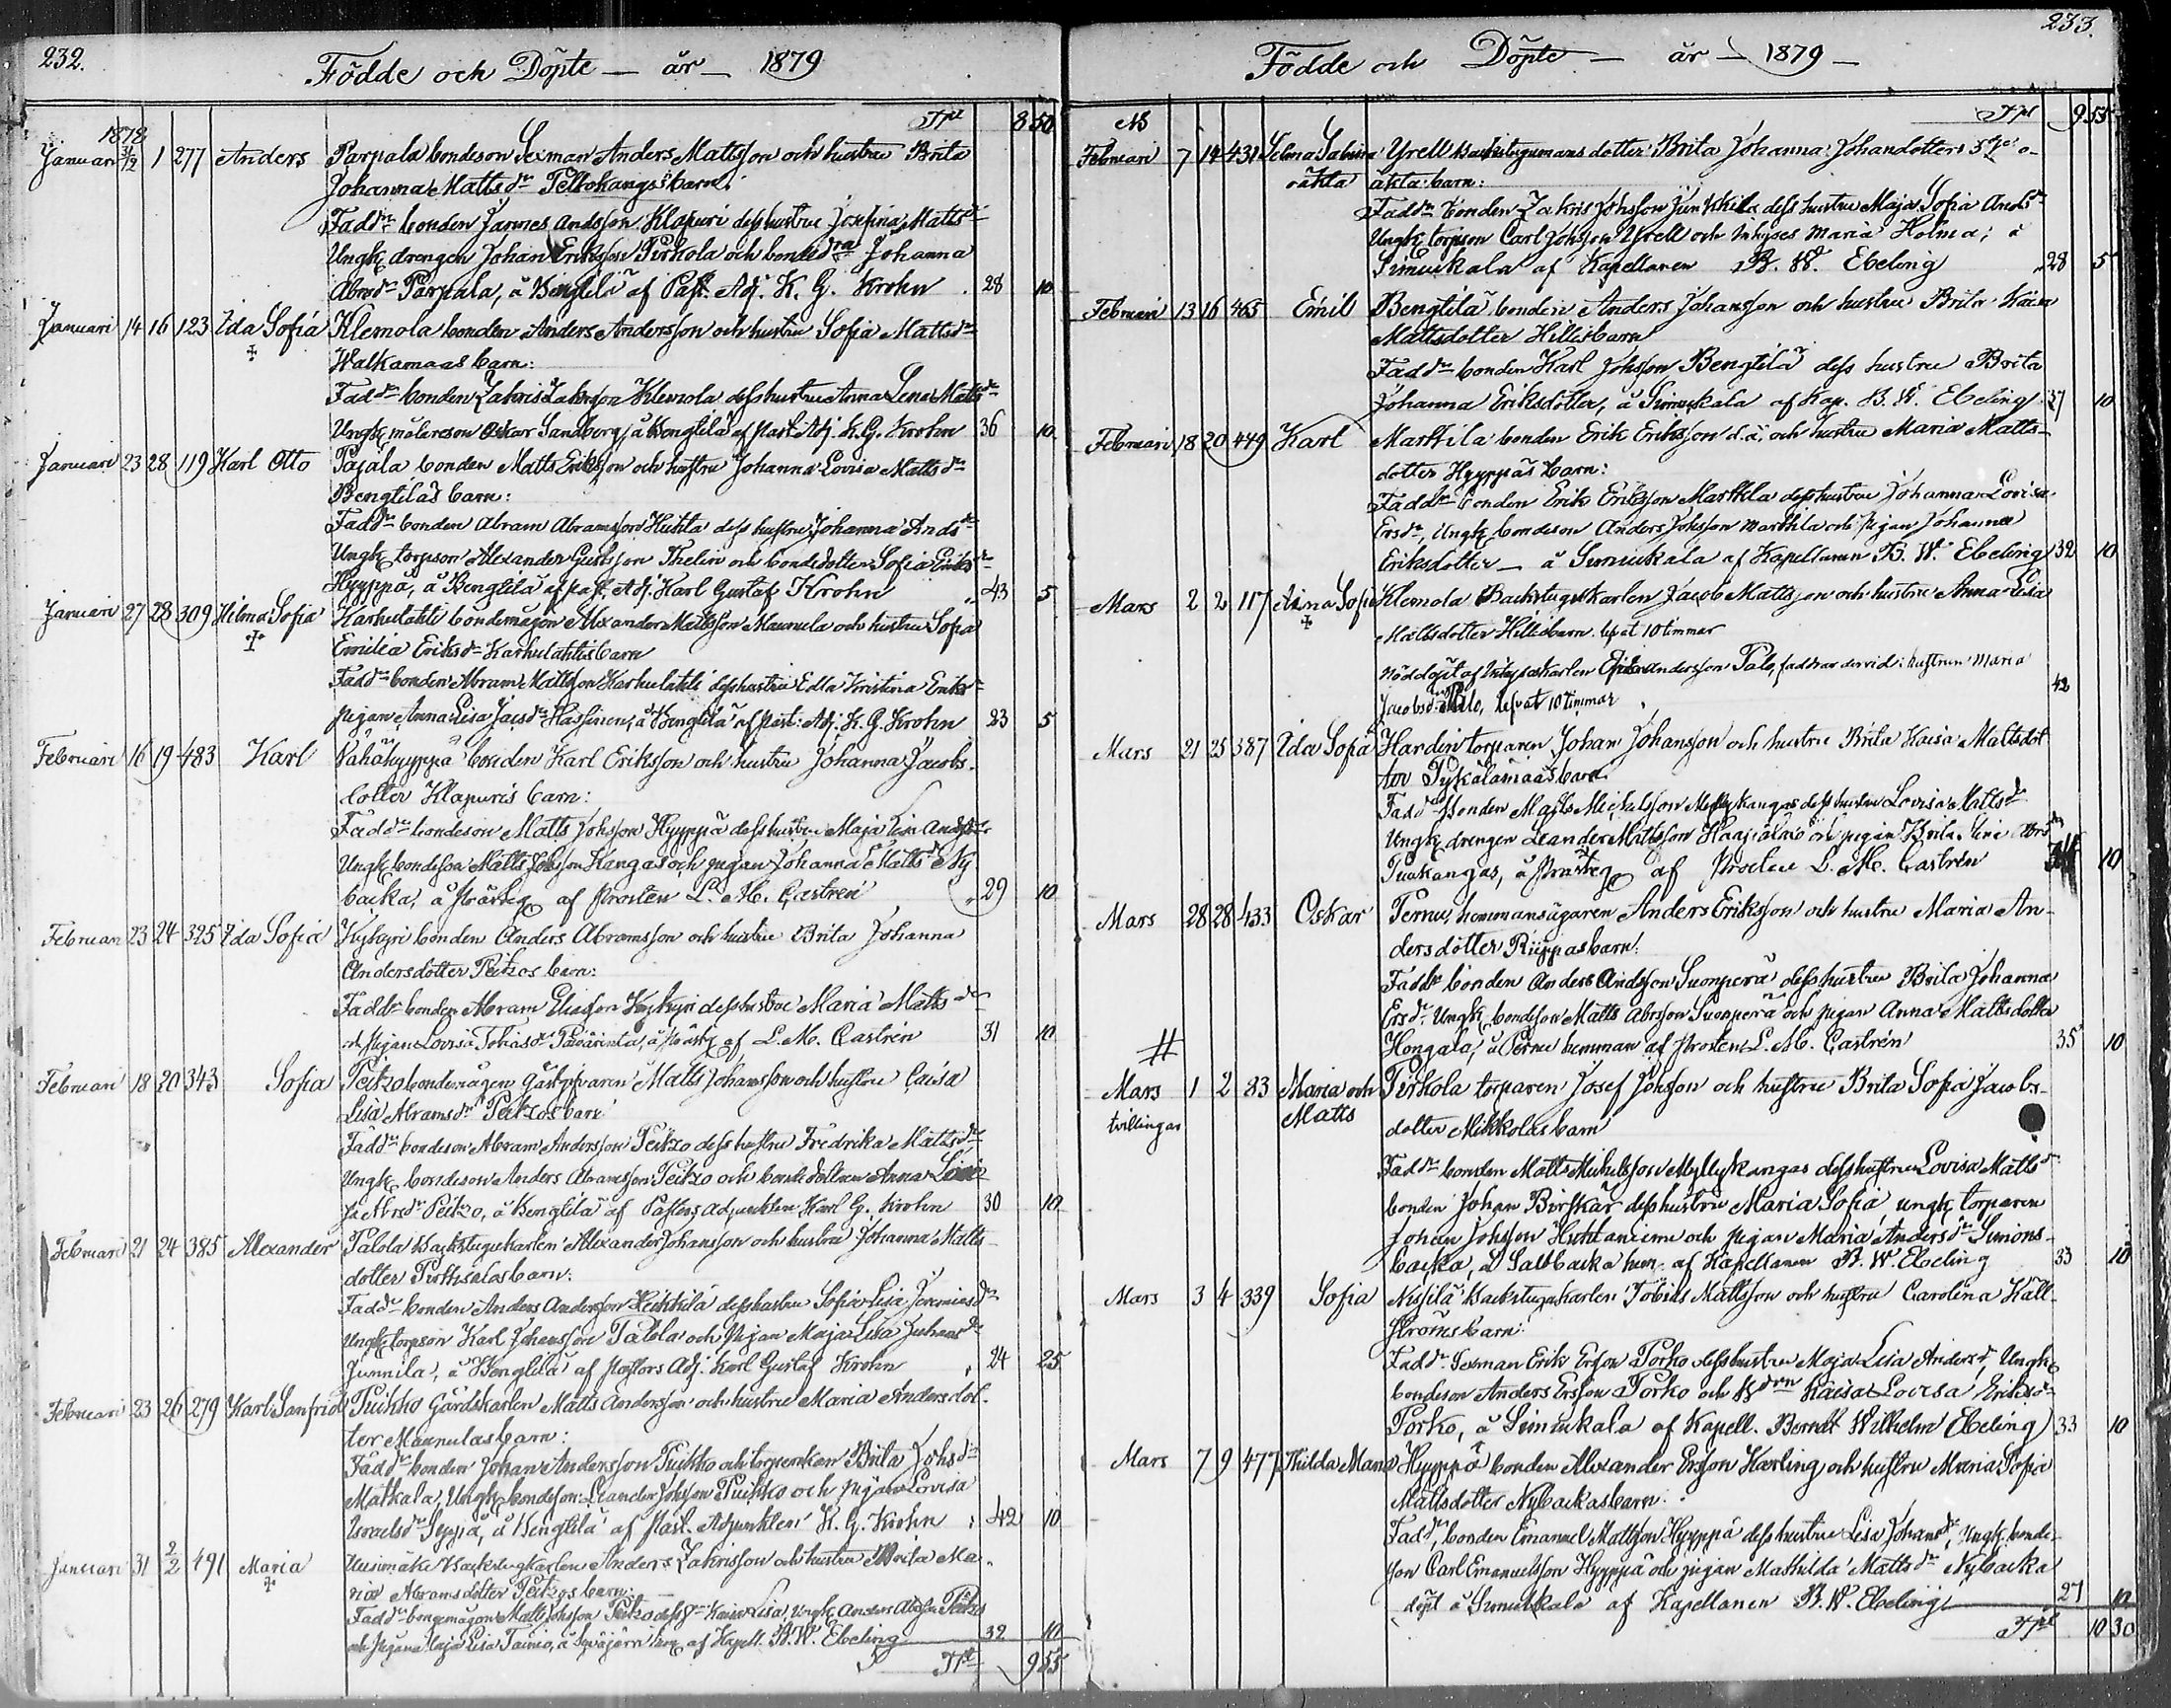 232.
Födde och Döpte — år — 1879
Tr 8 50
1878
Januari 31/12 1 277 Anders Parpala bondeson Sexman Anders Mattsson och hustru Brita
Johanna Mattsdr barn:
Faddr bonden Jannes Andsson Klapuri dess hustru Josefina Mattsdr
Ungk drengen Johan Eriksson Pirkola och bondedrn Johanna
Abrsdr Parpala, å Bengtilä af Past. Adj. K. G. Krohn 28 10
Januari 14 16 123 Ida Sofia Klemola bonden Anders Andersson och hustru Sofia Mattsdr
Walkamaas barn:
Faddr bonden Zakris Zakrisson Klemola dess hustru Anna Lena Mattsdr
Ungk målareson Oskar Sandberg, å Bengtilä af past. Adj. K. G. Krohn 36 10
Januari 23 28 119 Karl Otto Pajala bonden Matts Eriksson och hustru Johanna Lovisa Mattsdr
Bengtiläs barn:
Faddr bonden Abram Abramsson Huhta dess hustru Johanna Andsdr
Ungk torpson Alexander Gustsson Thelin och bondedotter Sofia Eriksdr
Hyyppä, å Bengtilä af past. Adj. Karl Gustaf Krohn 43 5
Januari 27 28 309 Hilma Sofia Karhulahti bondemågen Alexander Mattsson Maunula och hustru Sofia
Emilia Eriksdr Karhulahtis barn
Faddr bonden Abram Mattsson Karhulahti dess hustru Edla Kristina Eriksdr
pigan Anna Lisa Jacsdr Hassinen, å Bengtilä af past. Adj. K. G. Krohn 23 5
Februari 16 19 483 Karl Rahähyyppä bonden Karl Eriksson och hustru Johanna Jacobs-
dotter Klapuris barn:
Faddr bondeson Matts Johsson Hyyppä dess hustru Maja Lisa Andsdr
Ungk bondeson Matts Johsson Kangas och pigan Johanna Mattsdr Ny
backa, å Prästg af Prosten L. M. Castrén 29 10
Februari 23 24 325 Ida Sofia Kykyri bonden Anders Abramsson och hustru Brita Johanna
Andersdotter Peitzos barn:
Faddr bonden Abram Eliasson Kykyri dess hustru Maria Mattsdr
och pigan Lovisa Tobiasdr Päivärinta, å Prästg af L. M. Castrén 31 10
Februari 18 20 343 Sofia Peitzo bondemågen Gästgifvaren Matts Johansson och hustru Caisa
Lisa Abramsdr Peitzos barn
Faddr bondeson Abram Andersson Peitzo dess hustru Fredrika Mattsdr
Ungk bondeson Anders Abramsson Peitzo och bondedottren Anna
Abrsdr Peitzo, å Bengtilä af Pastors adjunkten Karl G. Krohn 30 10
Februari 21 24 385 Alexander Palola Backstugukarlen Alexander Johansson och hustru Johanna Matts-
dotter barn:
Faddr bonden Anders Andersson Heikkilä dess hustru Sofia Lisa Jeremiasdr
Ungk torpson Karl Johansson Palola och Pigan Maja Lisa Juhansdr
Junnila, å Bengtilä af Pastors Adj. Karl Gustaf Krohn 24 25
Februari 23 26 279 Karl Sanfrid Puikko Gårdskarlen Matts Andersson och hustru Maria Andersdot-
ter Maunulas barn:
Faddr bonden Johan Andersson Puikko och torparenkan Brita Johsdr
Matkala, Ungk bondeson: Leander Johsson Puikko och pigan Lovisa
Israelsdr Seppä, å Bengtilä af Past. Adjunkten K. G. Krohn 42 10
Januari 31 2/2 491 Maria Uusimäki Backstugkarlen Anders Zakrisson och hustru Brita Ma-
ria Abramsdotter Peitzos barn:
Faddr bondemågen Matts Johsson Peitzo dess hu Kaisa Lisa, Ungk Anders Peitzo
och Pigan Maja Lisa Tainio, å hem af Kapell. B. W. Ebeling 32 10
Tr 9 55
233.
Födde och Döpte — år — 1879 —
NB Tr 9 55
Februari 7 14 431 Selma Sabina Yrell Backstugumans dotter Brita Johanna Johandotters o-
oäkta äkta barn:
Faddr bonden Zakris Johsson Junkkila dess hustru Maja Sofia Andsdr
Ungk torpson Carl Johsson Yrell och Inhyses Maria Holma; å
Simuukala af Kapellanen B. W. Ebeling 28 5
Februari 13 16 465 Emil Bengtilä bonden Anders Johansson och hustru Brita Kaisa
Mattsdotter Hillis barn
Faddr bonden Karl Johsson Bengtilä dess hustru Brita
Johanna Eriksdotter, å Simuukala af Kap. B. W. Ebeling 37 10
Februari 18 20 449 Karl Marttila bonden Erik Eriksson d.ä. och hustru Maria Matts-
dotter Hyyppäs barn:
Faddr bonden Erik Eriksson Marttila dess hustru Johanna Lovisa
Ersdr, Ungk bondeson Anders Johsson Marttila och pigan Johanna
Eriksdotter — å Simuukala af Kapellanen B. W. Ebeling 32 10
Mars 2 2 117 Aina Sofia Klemola Backstugukarlen Jacob Mattsson och hustru Anna Lisa
Mattsdotter Hillis barn. lefvat 10 timmar
nöddöpt af Inhyseskarlen Andersson Palo, faddrar dervid: hustrun Maria
Jacobsdr Palo, lefvat 10 timmar 42
Mars 21 25 387 Ida Sofia Hardin torparen Johan Johansson och hustru Brita Kaisa Mattsdot
ter Pykälämaas barn
Faddr bonden Matts Michelsson Myllykangas dess hustru Lovisa Mattsdr
Ungk drengen Leander Mattsson och pigan Brita Lisa
Tuukangas, å Prästg af Prosten L. M. Castrén 10
Mars 28 28 433 Oskar Pernu hemmansägaren Anders Eriksson och hustru Maria An-
dersdotter Riippas barn:
Faddr bonden Anders Andsson Suonperä dess hustru Brita Johanna
Ersdr. Ungk bondeson Matts Abrsson Suonperä och pigan Anna Mattsdotter
Hongala, å Pernu hemman af Prosten L. M. Castrén 35 10
#
Mars 1 2 83 Maria och Pirkola torparen Josef Johsson och hustru Brita Sofia Jacobs-
tvillingar Matts dotter Mikkolas barn
Faddr bonden Matts Michelsson Myllykangas dess hustru Lovisa Mattsdr
bonden Johan Birskär dess hustru Maria Sofia ungk torparen
Johan Johsson Huhtaniemi och pigan Maria Andersdr Simons-
backa, å Saltbacka hem. af Kapellanen B. W. Ebeling 33 10
Mars 3 4 339 Sofia Nissilä Backstugukarlen Tobias Mattsson och hustru Carolina Käll-
ströms barn:
Faddr. Sexman Erik Ersson Porko dess hustru Maja Lisa Andersdr, Ungk
bondeson Anders Ersson Porko och Bdrn Kaisa Lovisa Eriksdr
Porko, å Simuukala af Kapell. Berndt Wilhelm Ebeling 33 10
Mars 7 9 477 Thilda Maria Hyyppä bonden Alexander Ersson Karling och hustru Maria Sofia
Mattsdotter Nybackas barn:
Faddr, bonden Emanuel Mattsson Hyyppä dess hustru Lisa Johansdr, Ungk. bonde-
son Carl Emanuelsson Hyyppä och pigan Mathilda Mattsdr Nybacka
döpt å Simuukala af Kapellanen B. W. Ebeling 27 10
Tr 10 30